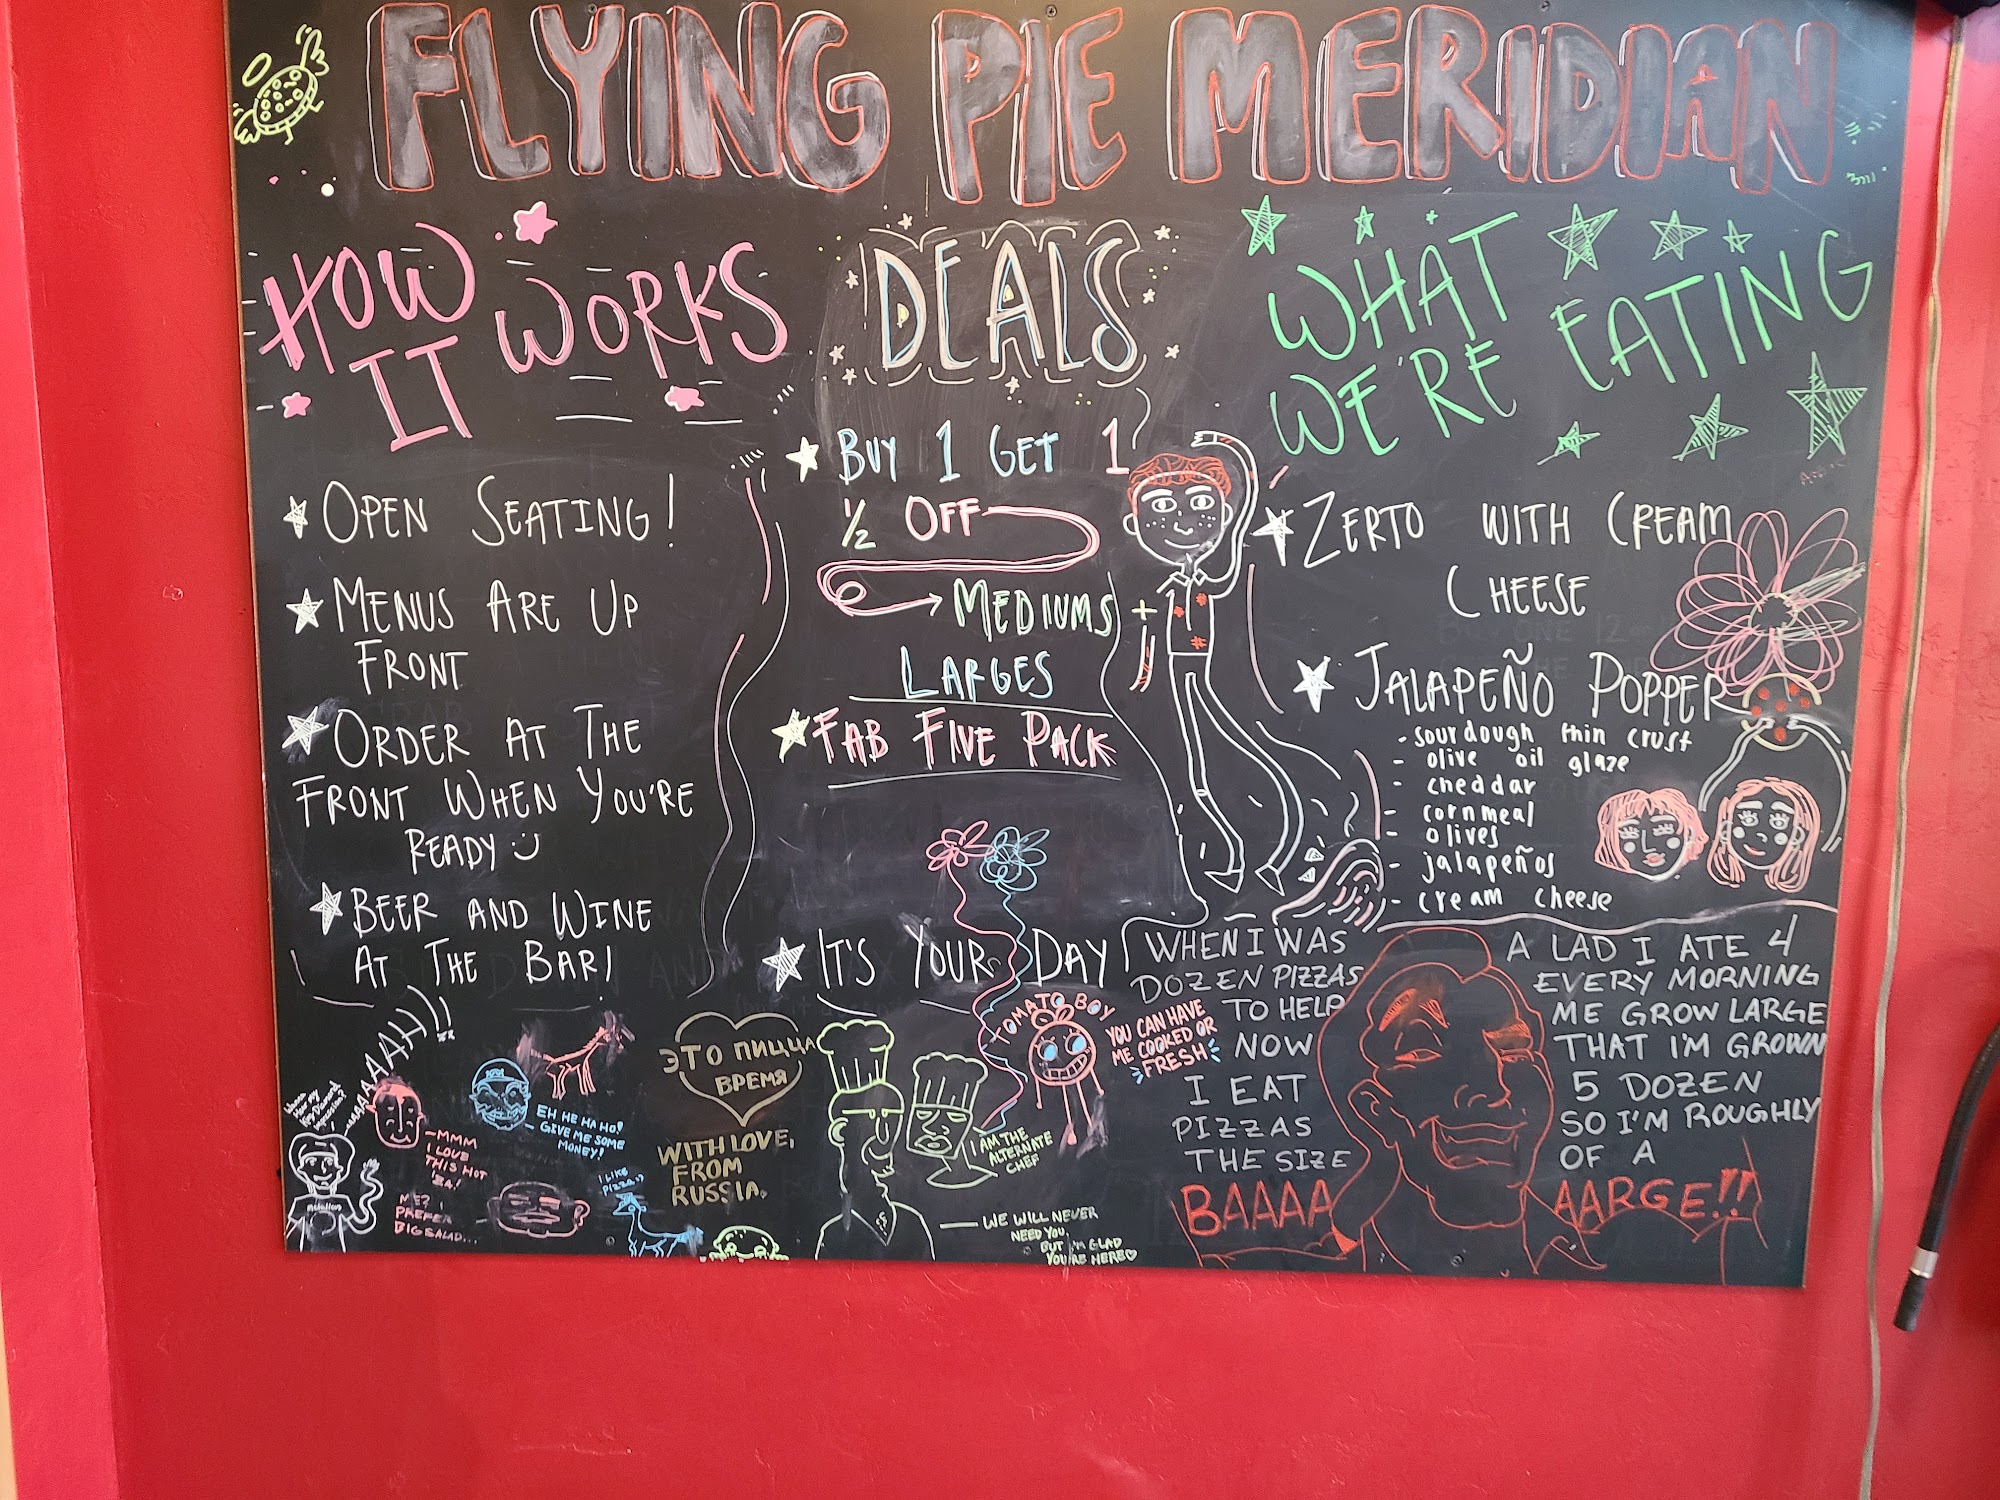 FLYING PIE MERIDIAN
HOW
IT WORKS
OPEN SEATING!
MENUS ARE UP
FRONT
ORDER AT THE
FRONT WHEN YOU'RE
READY :)
BEER AND WINE
AT THE BAR!
DEALS
BUY 1 GET 1
1/2 OFF
MEDIUMS +
LARGES
FAB FIVE PACK
IT'S YOUR DAY
WHAT
WE'RE EATING
ZERTO WITH CREAM
CHEESE
JALAPEÑO POPPER
- sourdough thin crust
- olive oil glaze
- cheddar
- cornmeal
- olives
- jalapeños
- cream cheese
MMM
I LOVE
THIS HOT
ZA!
ME? I
PREFER
BIG SALAD...
EH HE HA HO!
GIVE ME SOME
MONEY!
I LIKE
PIZZA :)
ЭТО ПИЦЦА
ВРЕМЯ
WITH LOVE,
FROM
RUSSIA.
I AM THE
ALTERNATE
CHEF
WE WILL NEVER
NEED YOU,
BUT I'M GLAD
YOU'RE HERE♡
TOMATO BOY
YOU CAN HAVE
ME COOKED OR
FRESH
WHEN I WAS A LAD I ATE 4
DOZEN PIZZAS EVERY MORNING
TO HELP ME GROW LARGE
NOW THAT I'M GROWN
I EAT 5 DOZEN
PIZZAS SO I'M ROUGHLY
THE SIZE OF A
BAAAA AARGE!!